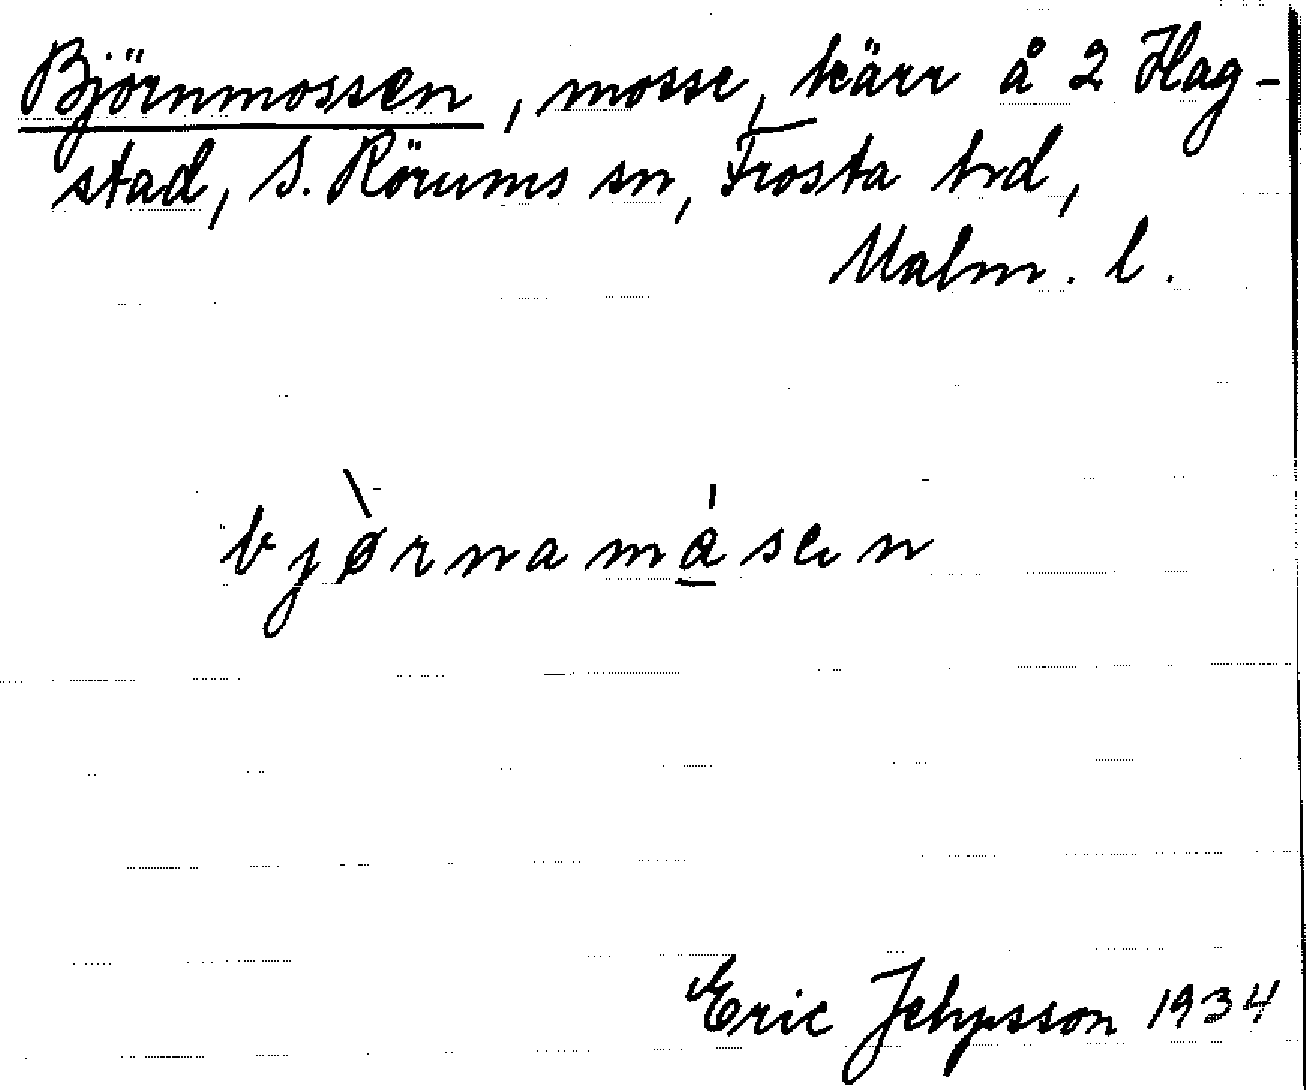 Björnmossen, mosse, kärr å 2 Hag-
stad, S. Rörums sn, Frosta hd,
Malm. l.
bjø̀rnamá̱sen
Eric Jehpsson 1934